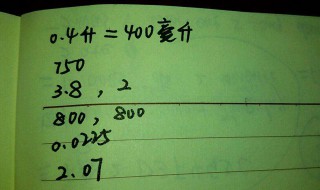 0.4升=400毫升
750
3.8，2
800，800
0.0225
2.07